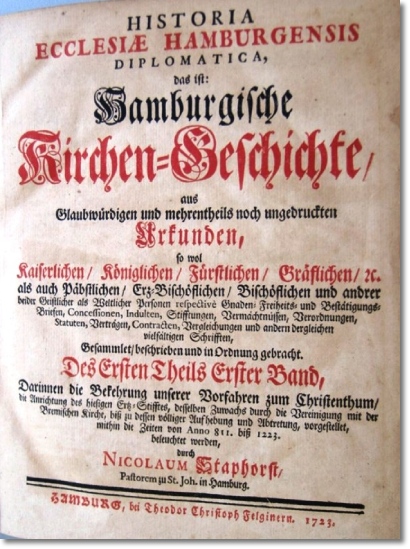 HISTORIA
ECCLESIÆ HAMBURGENSIS
DIPLOMATICA,
das ist:
Hamburgische
Kirchen-Geschichte/
aus
Glaubwürdigen und mehrentheils noch ungedruckten
Urkunden,
so wol
Kaiserlichen/ Königlichen/ Fürstlichen/ Gräflichen/ ꝛc.
als auch Päbstlichen/ Ertz-Bischöflichen/ Bischöflichen und andrer
beider Geistlicher als Weltlicher Personen respectivè Gnaden- Freiheits- und Bestätigungs-
Briefen, Concessionen, Indulten, Stifftungen, Vermächtnüssen, Verordnungen,
Statuten, Verträgen, Contracten, Vergleichungen und andern dergleichen
vielfältigen Schrifften,
Gesammlet/ beschrieben und in Ordnung gebracht.
Des Ersten Theils Erster Band,
Darinnen die Bekehrung unserer Vorfahren zum Christenthum/
die Anrichtung des hiesigen Ertz-Stifftes, desselben Zuwachs durch die Vereinigung mit der
Bremischen Kirche, biß zu dessen völliger Aufhebung und Abtretung, vorgestellet,
mithin die Zeiten von Anno 811. biß 1223.
beleuchtet werden,
durch
NICOLAUM Staphorst/
Pastorem zu St. Joh. in Hamburg.
HAMBURG, bei Theodor Christoph Felginern. 1723.